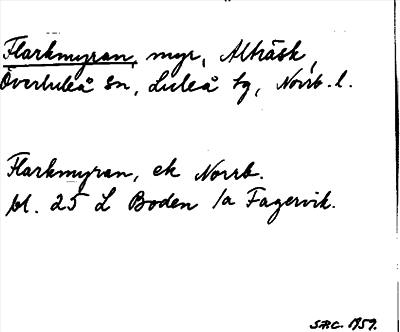 Flarkmyran, myr, Alträsk,
Överluleå sn, Luleå tg, Norrb. l.
Flarkmyran, ek Norrb.
bl. 25 L Boden /a Fagervik.
1959.